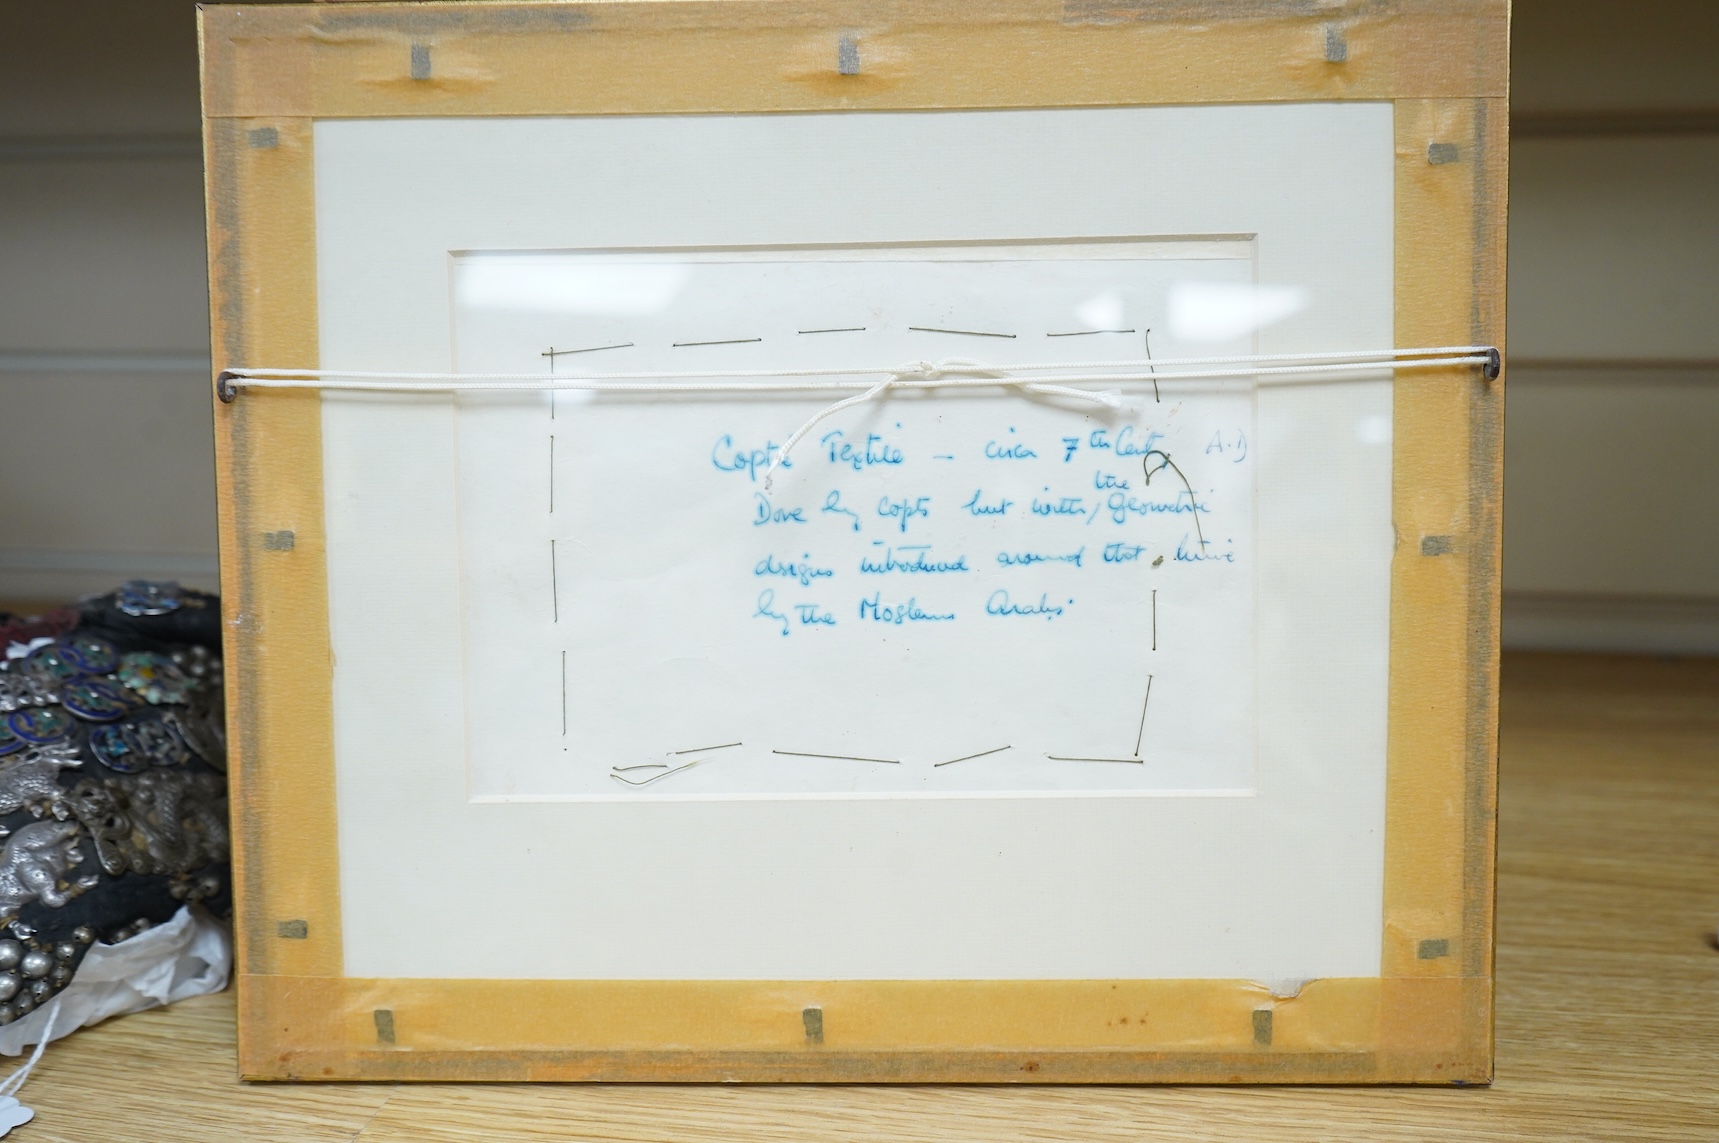 Coptic Textile - circa 7th Cent, A.D
the
Done by Copts but with / Geometric
designs introduced around that time
by the Moslems Arabs.